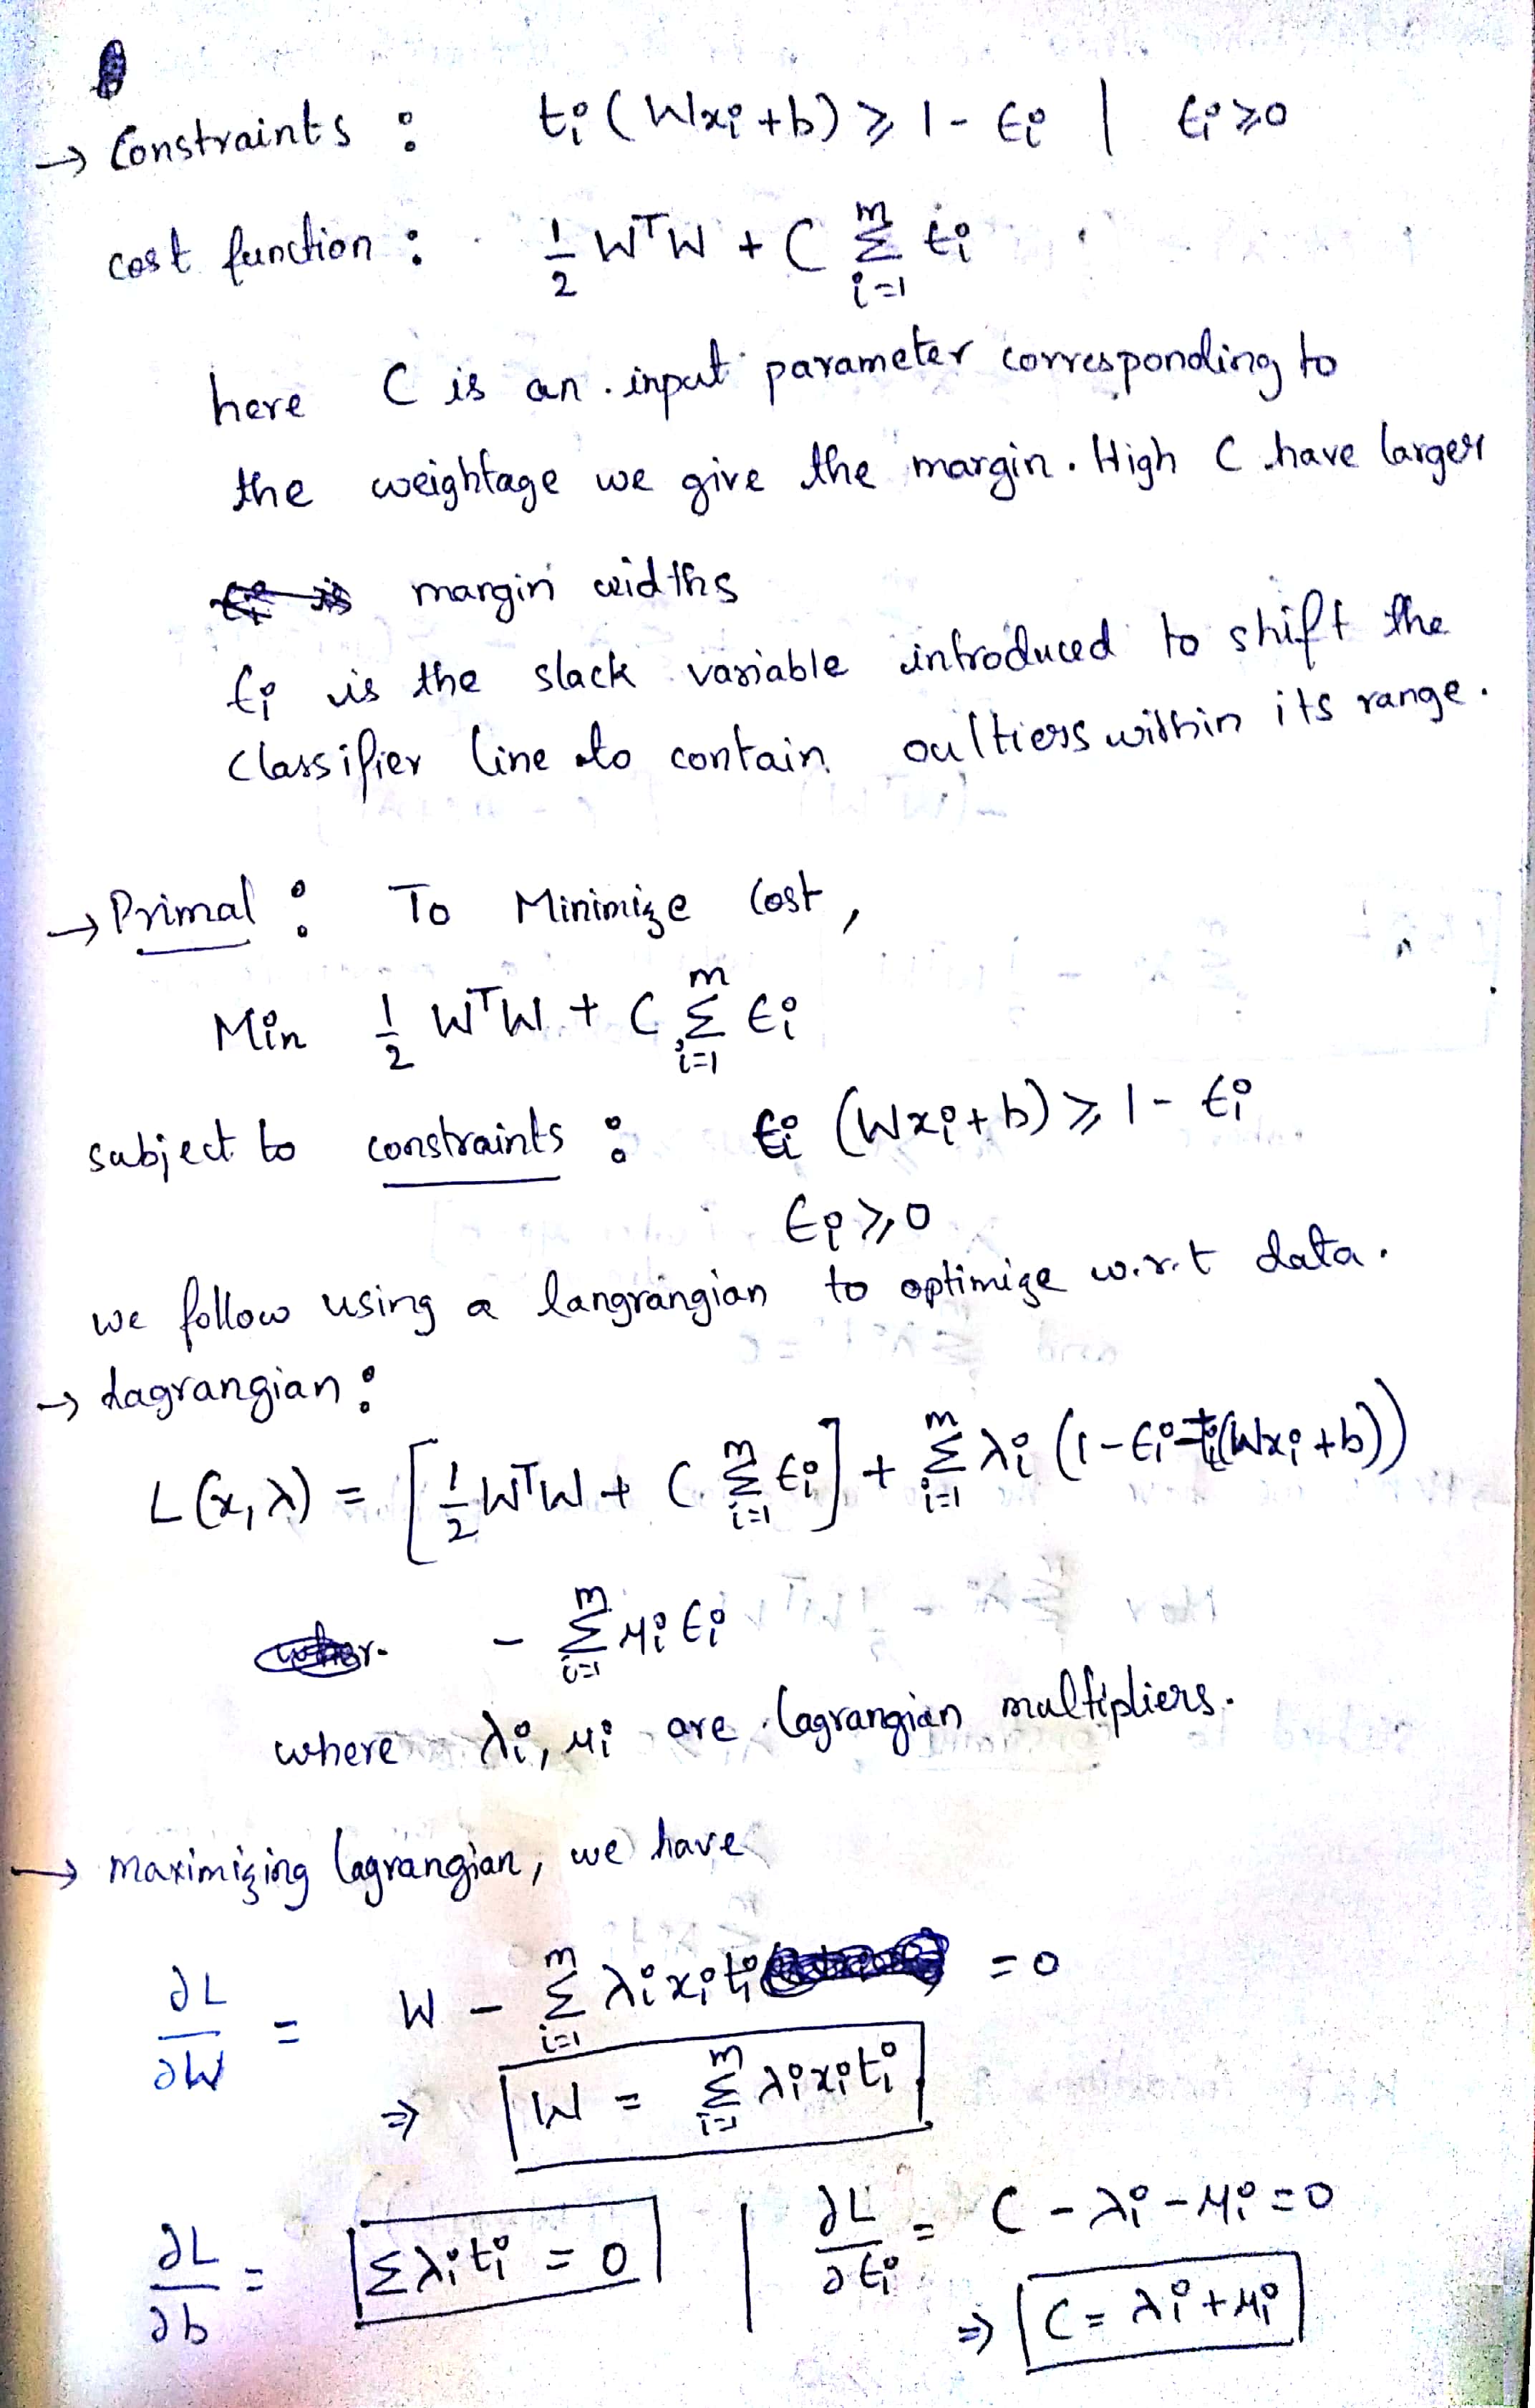 → Constraints : tᵢ(Wxᵢ+b) ⩾ 1 - ϵᵢ | ϵᵢ ⩾ 0
cost function : 1/2 WᵀW + C Σᵢ₌₁ᵐ ϵᵢ
here C is an input parameter corresponding to
the weightage we give the margin. High C have larger
margin widths
ϵᵢ is the slack variable introduced to shift the
classifier line to contain oultiers within its range.
→ Primal : To Minimize Cost,
Min 1/2 WᵀW + C Σᵢ₌₁ᵐ ϵᵢ
subject to constraints : tᵢ (Wxᵢ+b) ⩾ 1 - ϵᵢ
ϵᵢ ⩾ 0
we follow using a langrangian to optimize w.r.t data.
→ Lagrangian :
L(x,λ) = [1/2 WᵀW + C Σᵢ₌₁ᵐ ϵᵢ] + Σᵢ₌₁ᵐ λᵢ (1-ϵᵢ-tᵢ(Wxᵢ+b))
- Σᵢ₌₁ᵐ μᵢ ϵᵢ
where λᵢ, μᵢ are lagrangian multipliers.
→ maximizing lagrangian, we have
∂L/∂W = W - Σᵢ₌₁ᵐ λᵢxᵢtᵢ = 0
⇒ W = Σᵢ₌₁ᵐ λᵢxᵢtᵢ
∂L/∂b = Σλᵢtᵢ = 0 | ∂L/∂ϵᵢ = C - λᵢ - μᵢ = 0
⇒ C = λᵢ + μᵢ